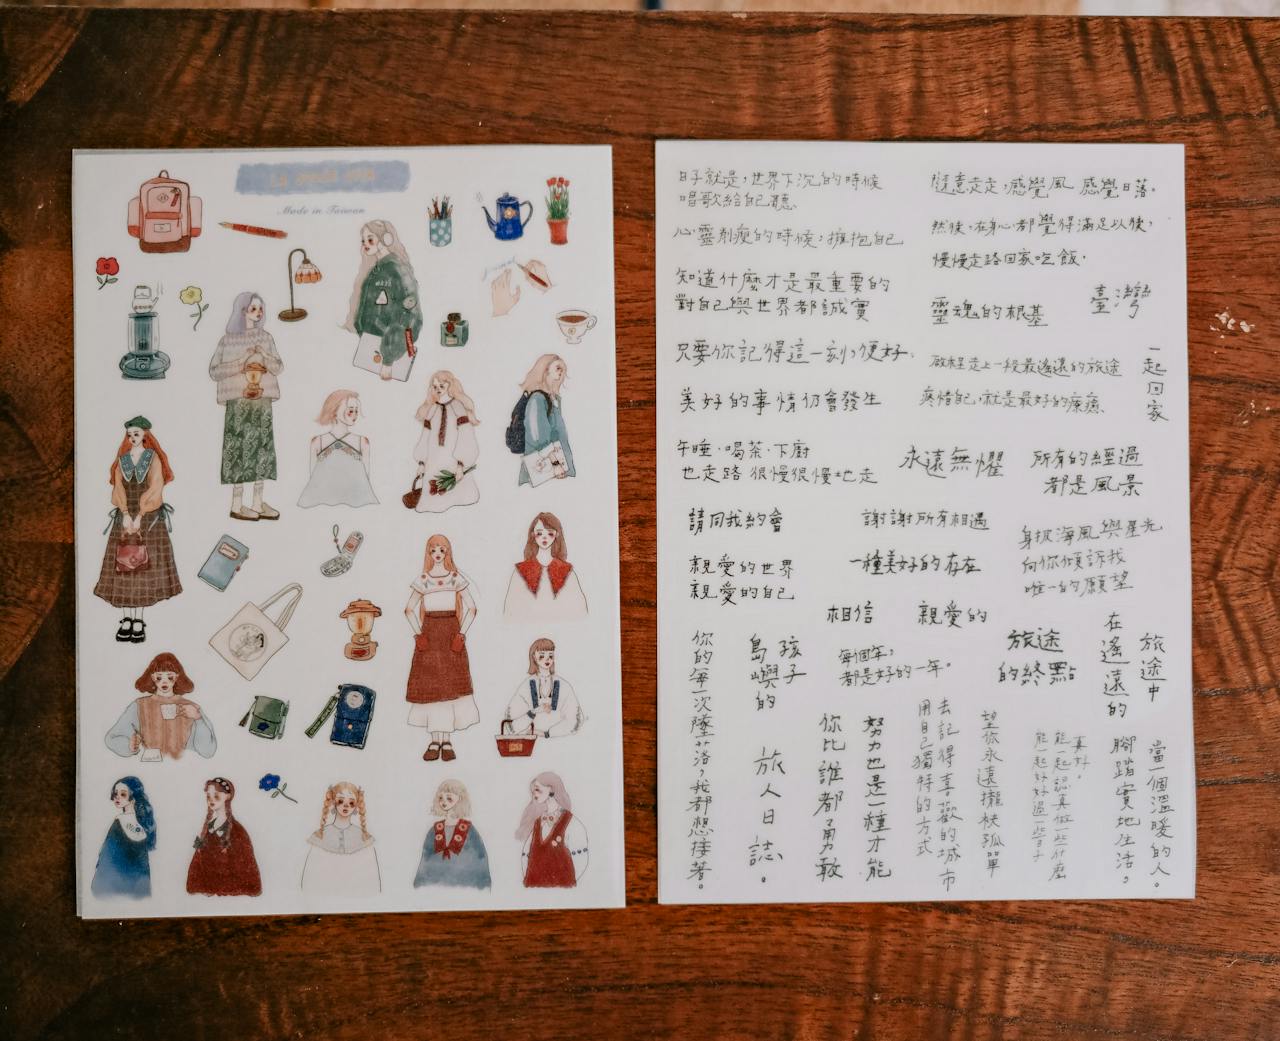 Made in Taiwan
journal
日子就是，世界下沉的時候
唱歌給自己聽
心靈剝瘦的時候，擁抱自己
知道什麼才是最重要的
對自己與世界都誠實
只要你記得這一刻，便好。
美好的事情仍會發生
午睡·喝茶·下廚
也走路很慢很慢地走
請同我約會
親愛的世界
親愛的自己
隨意走走，感覺風 感覺日落。
然後，在身心都覺得滿足以後，
慢慢走路回家吃飯。
靈魂的根基
臺灣
啟程走上一段最遙遠的旅途
疼惜自己，就是最好的療癒
一起回家
永遠無懼
所有的經過
都是風景
謝謝所有相遇
一種美好的存在
身披海風與星光
向你傾訴我
唯一的願望
相信
親愛的
每個年，
都是好的一年。
旅途
的終點
旅途中
在遙遠的
你的每一次墜落，我都想接著。
孩子
島嶼的
旅人日誌。
努力也是一種才能
你比誰都勇敢
去記得喜歡的城市
用自己獨特的方式
望你永遠擺袂孤單
真好。
能一起認真做一些什麼
能一起好好過一些日子
當一個溫暖的人。
腳踏實地生活，